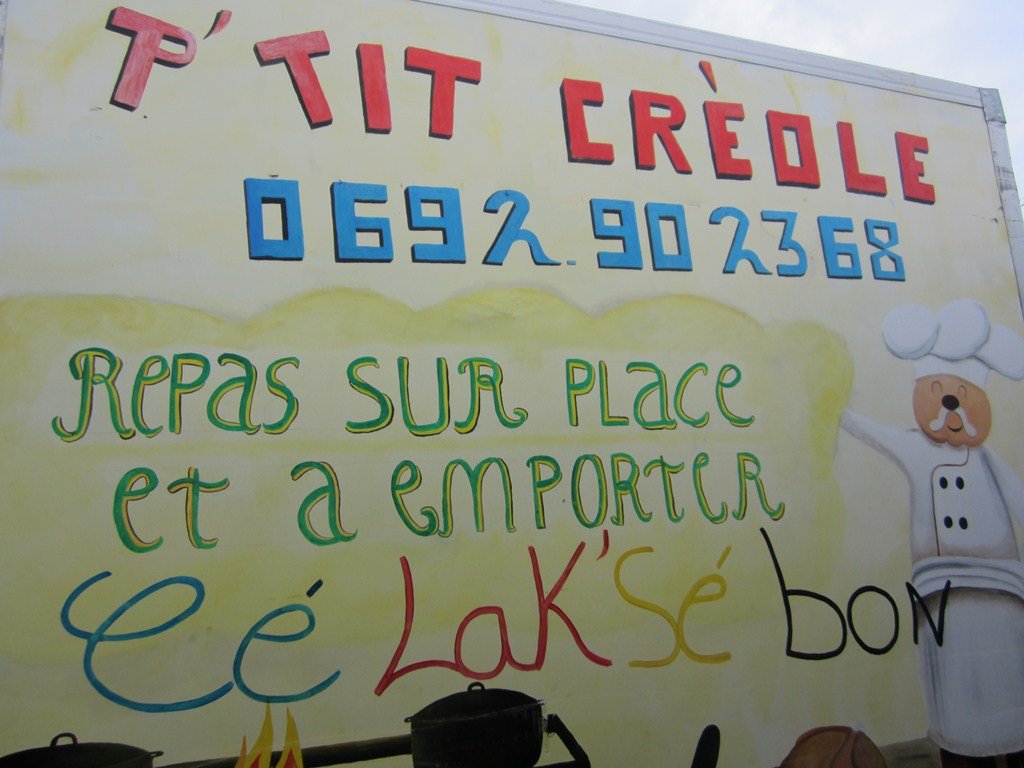 P'TIT CRÈOLE
0692.902368
REPAS SUR PLACE
et a EMPORTER
Cé LaK'Sé bon